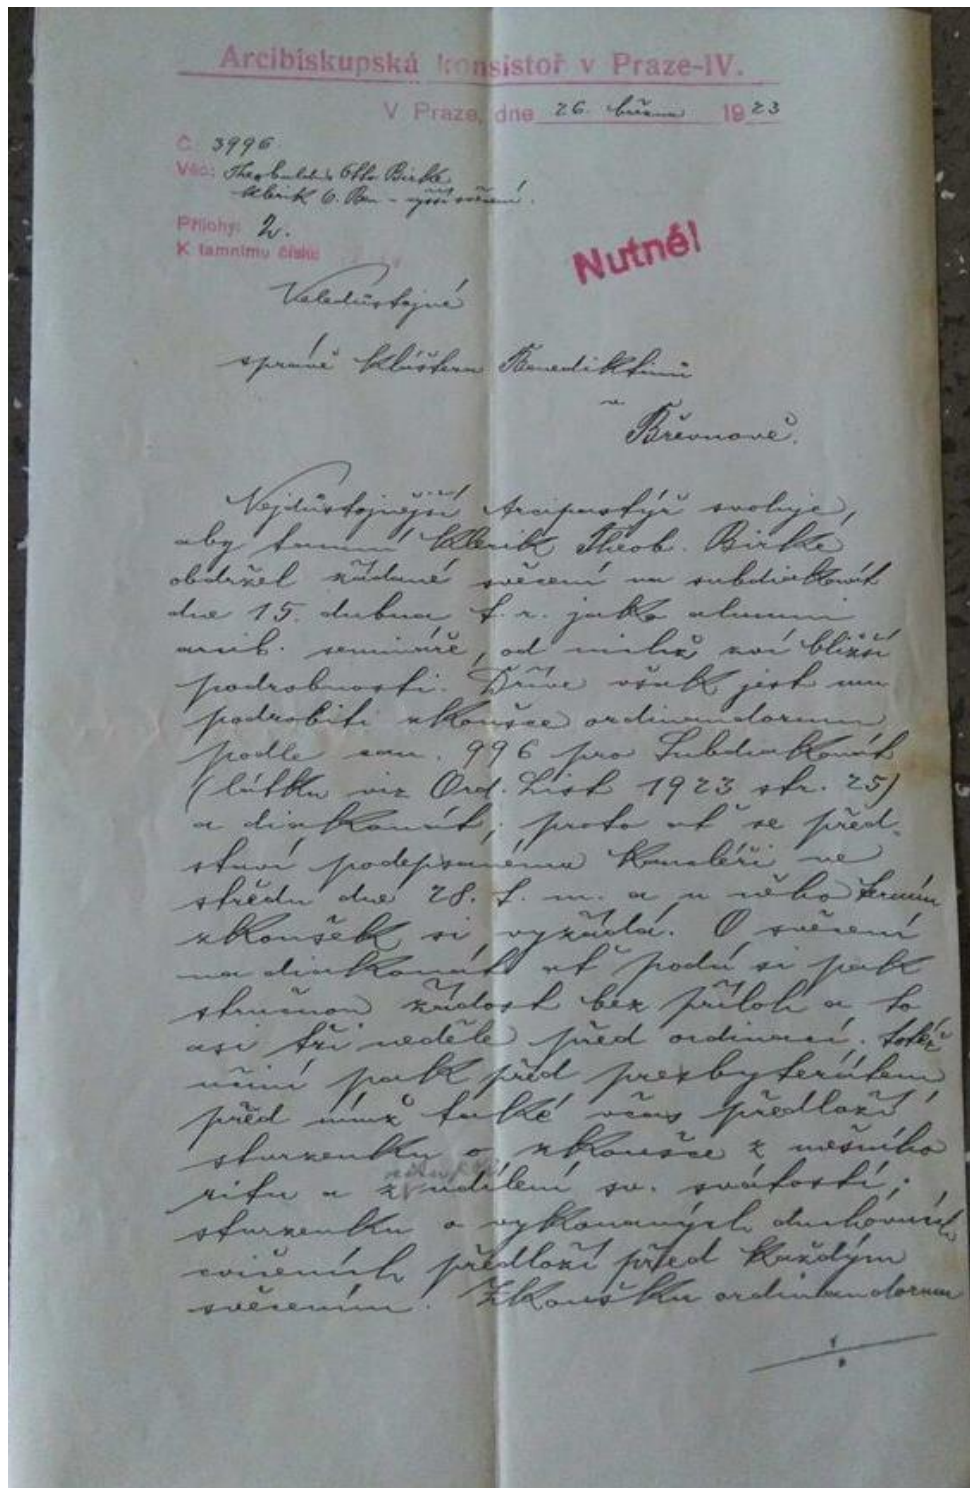 Arcibiskupská konsistoř v Praze-IV.
V Praze, dne 26. března 1923
Č. 3996
Věc: Theobaldus Otto Birke
klerik ř. Ben - vyšší svěcení.
Přílohy: 2.
K tamnímu číslu:
Nutné!
Veledůstojné
správě kláštera Benediktinů
v
Břevnově.
Nejdůstojnější Arcipastýř svoluje,
aby tamní klerik Theob. Birke
obdržel žádané svěcení na subdiakonát
dne 15. dubna t. r. jako alumni
arcib. semináře, od nichž zví bližší
podrobnosti. Dříve však jest mu
podrobiti zkoušce ordinandorum
podle can. 996 pro Subdiakonát
(látku viz Ord. List 1923 str. 25)
a diakonát; proto ať se před-
staví podepsanému kancléři ve
středu dne 28. t. m. a u něho termín
zkoušek si vyžádá. O svěcení
na diakonát ať podá si pak
stručnou žádost bez příloh a to
asi tři neděle před ordinací. totéž
učiní pak před presbyterátem
před nímž také včas předloží
stvrzenku o zkoušce z mešního
ritu a z udílení sv. svátostí;
stvrzenku o vykonaných duchovních
cvičeních předloží před každým
svěcením. Zkoušku ordinandorum
./.